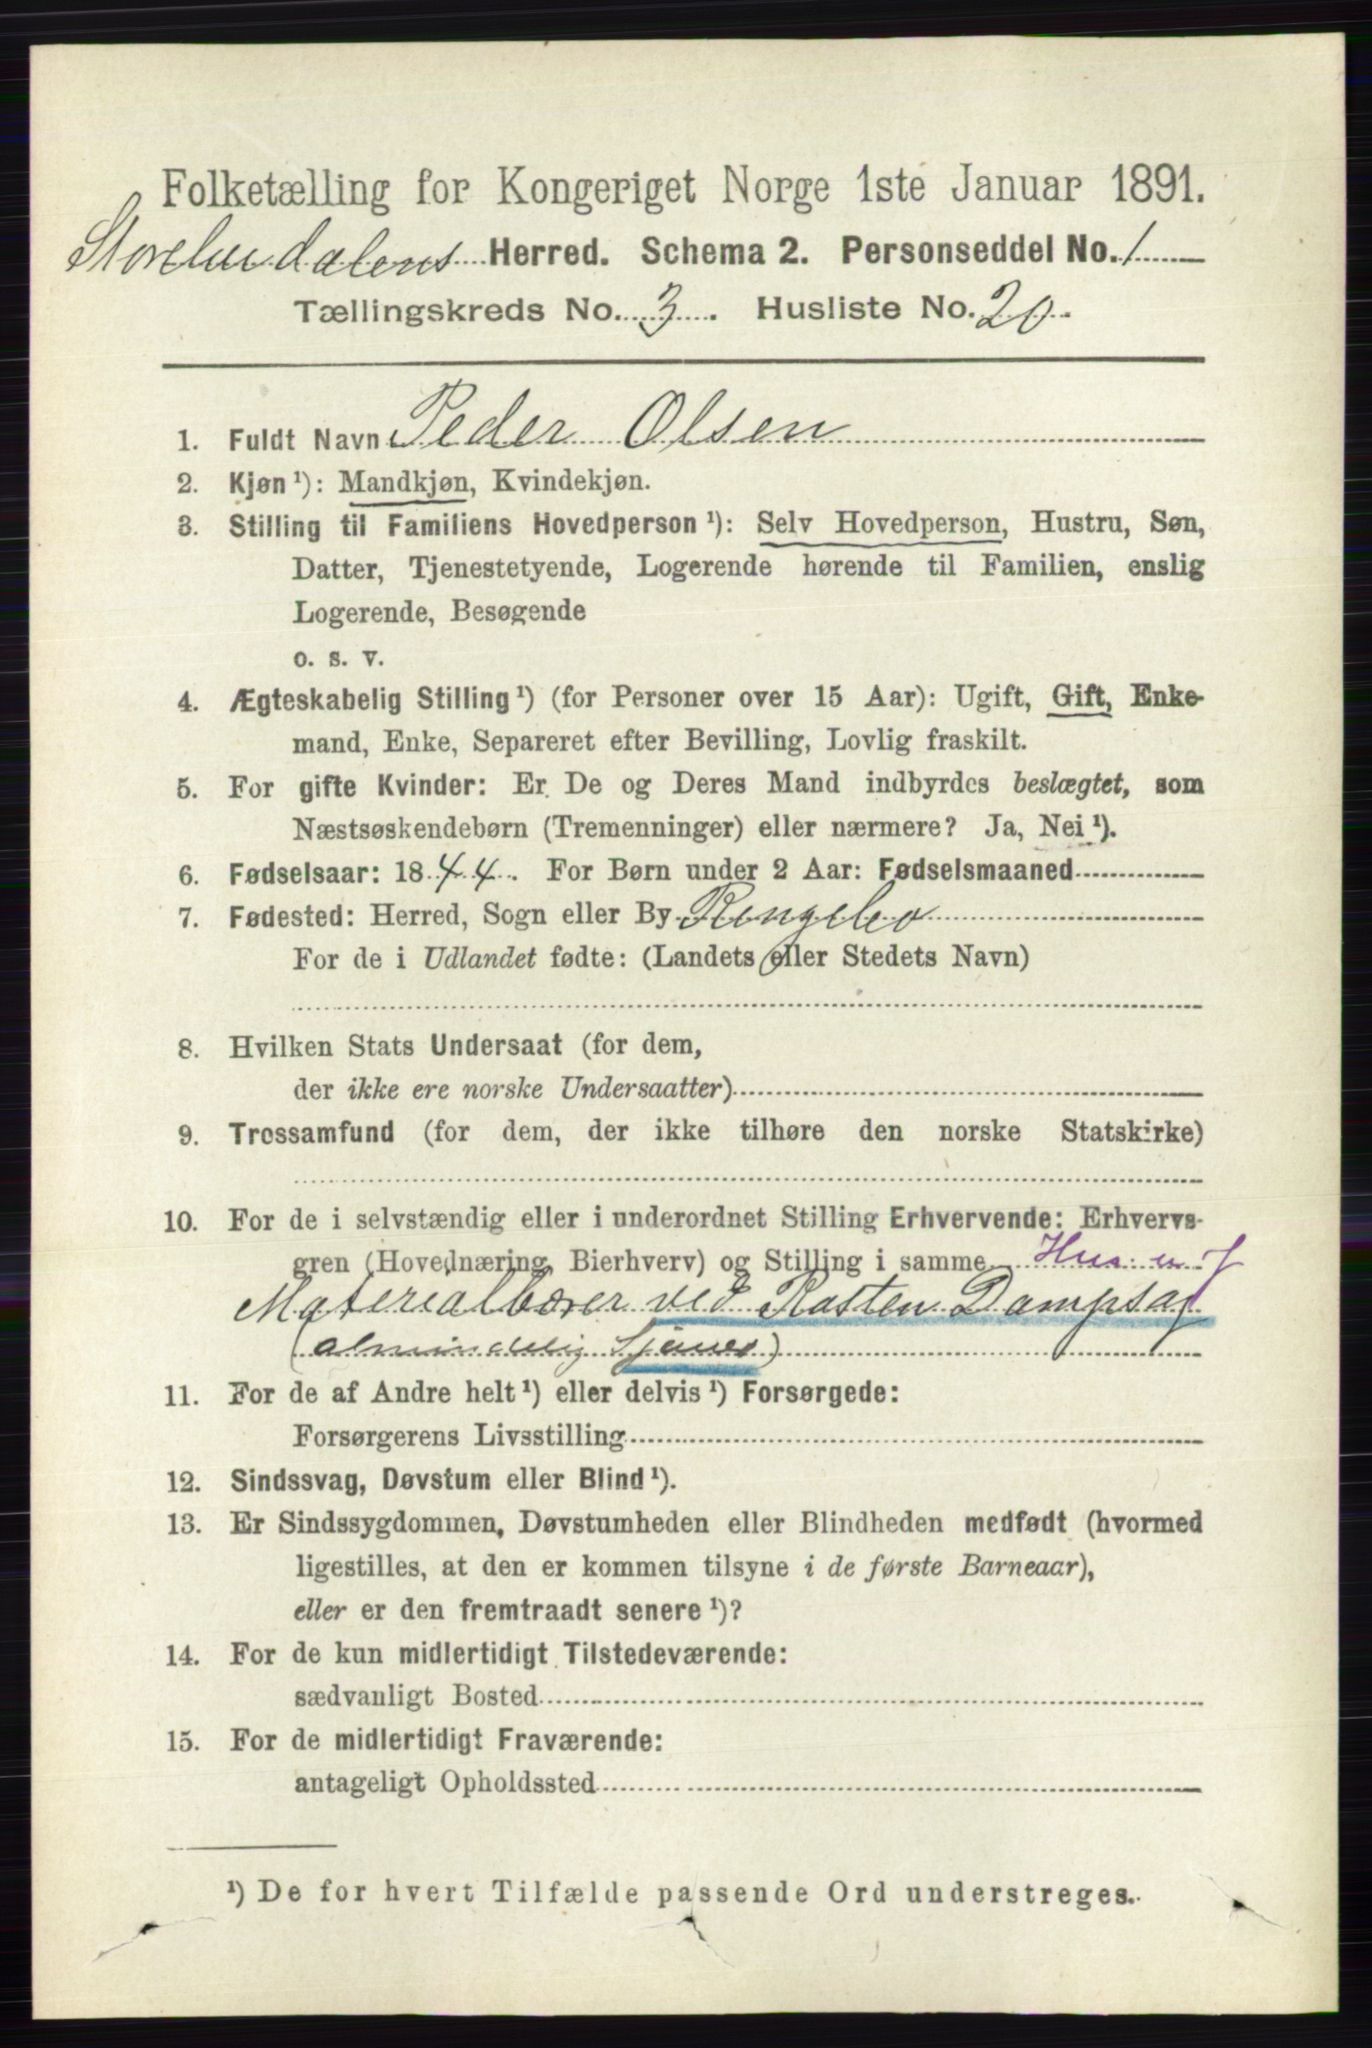 Folketælling for Kongeriget Norge 1ste Januar 1891.
Storelvdalens Herred. Schema 2. Personseddel No. 1
Tællingskreds No. 3. Husliste No. 20.
1. Fuldt Navn Peder Olsen
2. Kjøn ¹): Mandkjøn, Kvindekjøn.
3. Stilling til Familiens Hovedperson ¹): Selv Hovedperson, Hustru, Søn,
Datter, Tjenestetyende, Logerende hørende til Familien, enslig
Logerende, Besøgende
o. s. v.
4. Ægteskabelig Stilling ¹) (for Personer over 15 Aar): Ugift, Gift, Enke-
mand, Enke, Separeret efter Bevilling, Lovlig fraskilt.
5. For gifte Kvinder: Er De og Deres Mand indbyrdes beslægtet, som
Næstsøskendebørn (Tremenninger) eller nærmere? Ja, Nei ¹).
6. Fødselsaar: 1844. For Børn under 2 Aar: Fødselsmaaned
7. Fødested: Herred, Sogn eller By Ringebo
For de i Udlandet fødte: (Landets eller Stedets Navn)
8. Hvilken Stats Undersaat (for dem,
der ikke ere norske Undersaatter)
9. Trossamfund (for dem, der ikke tilhøre den norske Statskirke)
10. For de i selvstændig eller i underordnet Stilling Erhvervende: Erhvervs-
gren (Hovednæring, Bierhverv) og Stilling i samme Hus
Materialbærer ved Kosten Dampsag
(almindelig Sjauer)
11. For de af Andre helt ¹) eller delvis ¹) Forsørgede:
Forsørgerens Livsstilling
12. Sindssvag, Døvstum eller Blind ¹).
13. Er Sindssygdommen, Døvstumheden eller Blindheden medfødt (hvormed
ligestilles, at den er kommen tilsyne i de første Barneaar),
eller er den fremtraadt senere ¹)?
14. For de kun midlertidigt Tilstedeværende:
sædvanligt Bosted
15. For de midlertidigt Fraværende:
antageligt Opholdssted
¹) De for hvert Tilfælde passende Ord understreges.